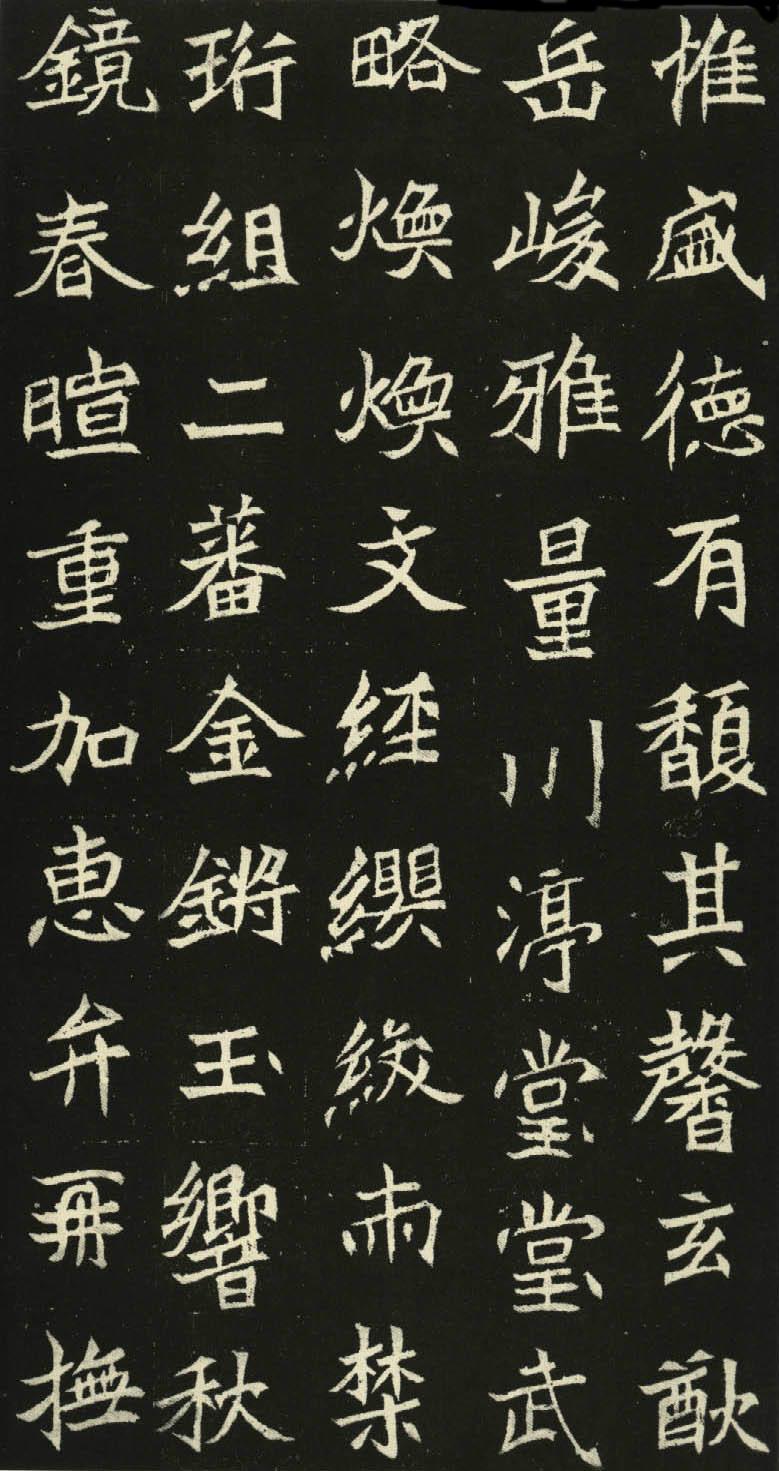 惟盛徳有馥其馨玄猷
岳峻雅量川渟堂堂武
略煥煥文經纓紱兩禁
珩組二蕃金鏘玉響秋
鏡春暄重加恵弁再撫